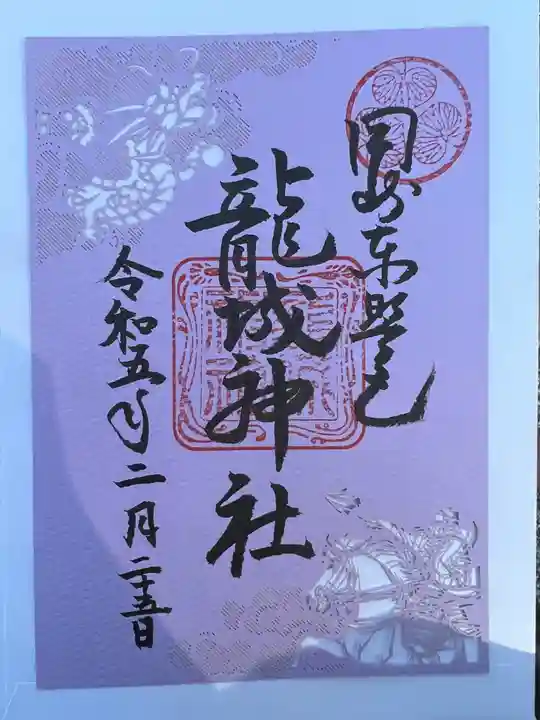 岡崎東照宮
龍城神社
令和五年二月二十五日